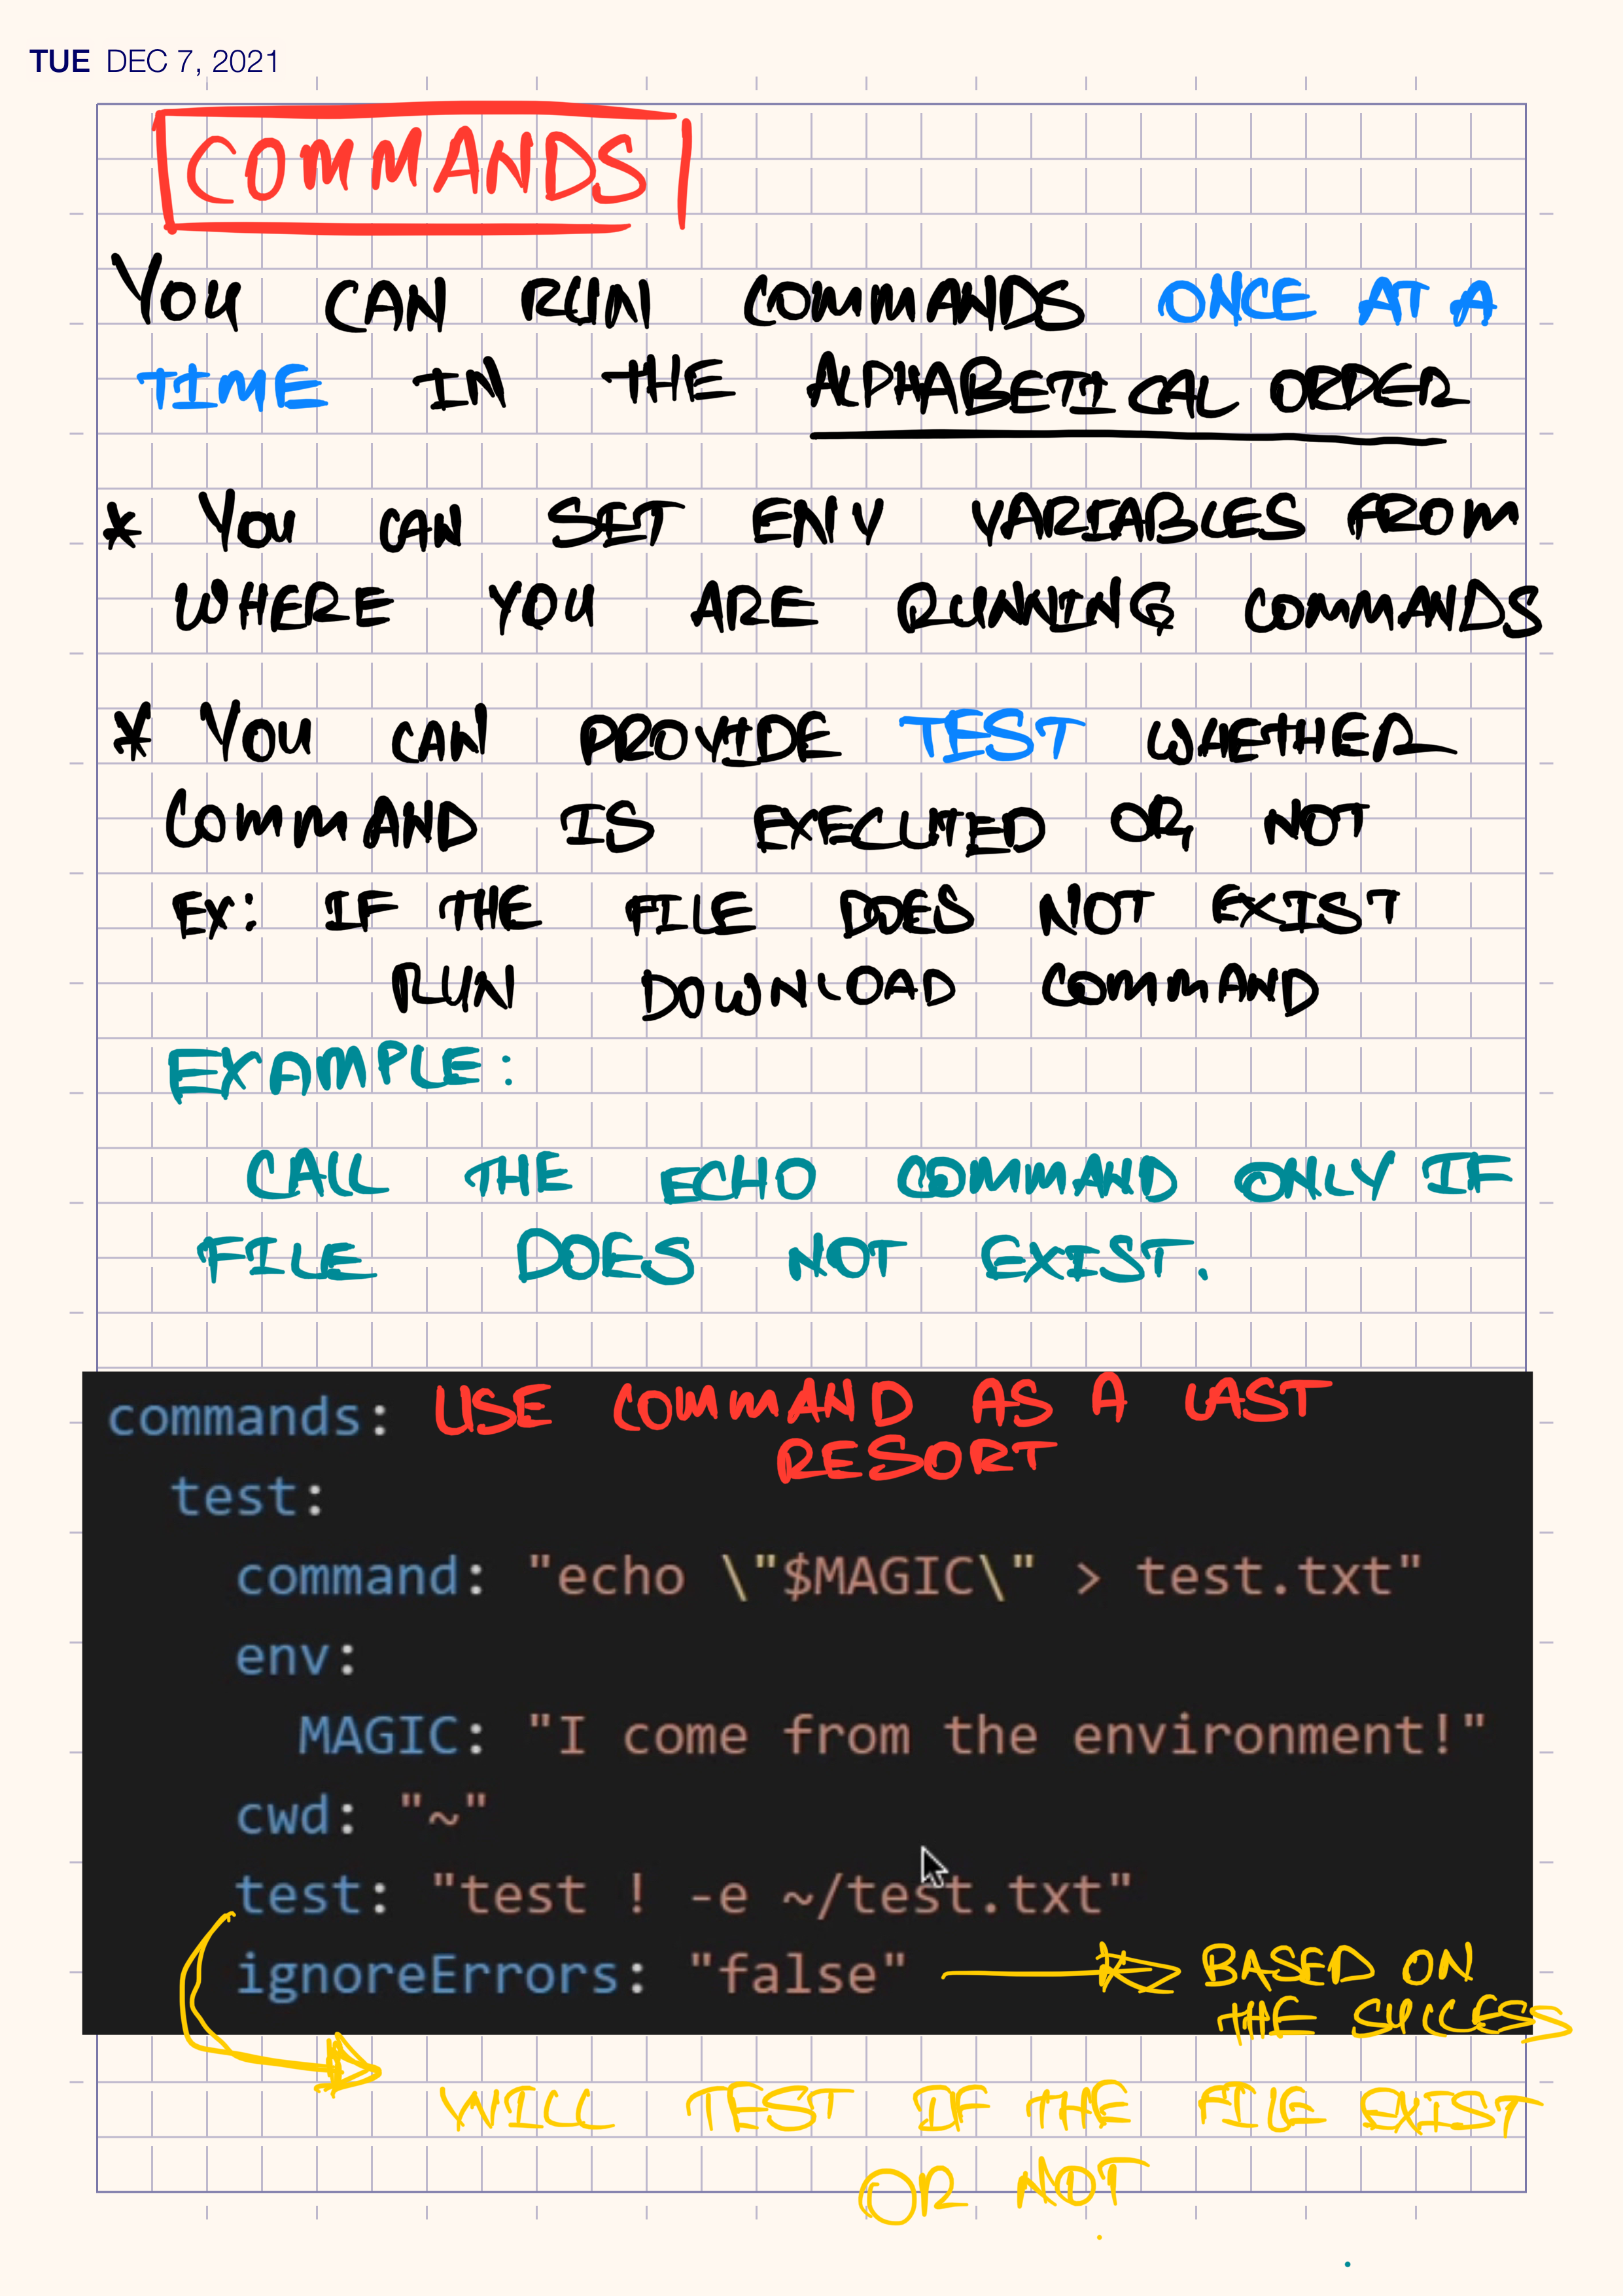 TUE DEC 7, 2021
COMMANDS
YOU CAN RUN COMMANDS ONCE AT A
TIME IN THE ALPHABETICAL ORDER
* YOU CAN SET ENV VARIABLES FROM
WHERE YOU ARE RUNNING COMMANDS
* YOU CAN PROVIDE TEST WHETHER
COMMAND IS EXECUTED OR NOT
EX: IF THE FILE DOES NOT EXIST
RUN DOWNLOAD COMMAND
EXAMPLE:
CALL THE ECHO COMMAND ONLY IF
FILE DOES NOT EXIST.
commands: USE COMMAND AS A LAST
RESORT
test:
command: "echo \"$MAGIC\" > test.txt"
env:
MAGIC: "I come from the environment!"
cwd: "~"
test: "test ! -e ~/test.txt"
ignoreErrors: "false" BASED ON
THE SUCCESS
WILL TEST IF THE FILE EXIST
OR NOT